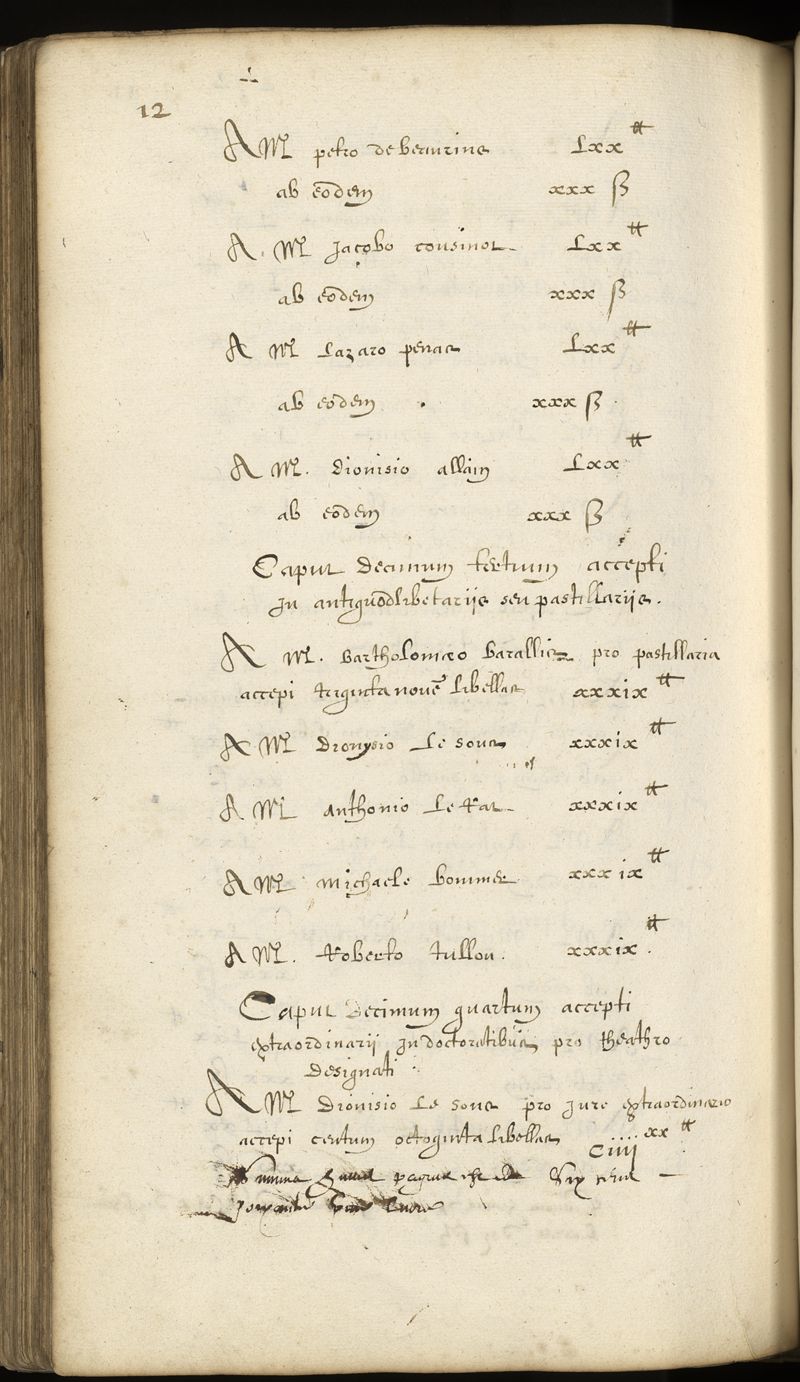 12
A Mro petro de beaurins Lxx tt
ab eodem xxx ß
A Mro Jacobo cousinot Lxx tt
ab eodem xxx ß
A Mro Lazaro penac Lxx tt
ab eodem xxx ß
A Mro. Dionisio allain Lxx tt
ab eodem xxx ß
Caput Decimum tertium accepti
In antiquodlibetariis seu pastillariis.
A Mro. Bartholomaeo Barallis pro pastillaria
accepi triginta novem libellas xxxix tt
A Mro Dionysio Le Soub xxxix tt
A Mro Anthonio Le Rat xxxix tt
A Mro Michaele Bommer xxxix tt
A Mro. Roberto tullou. xxxix tt.
Caput Decimum quartum accepti
extraordinarii In doctoratibus pro theathro
Designati
A Mro Dionisio Le Soub pro jure extraordinario
accepi centum octoginta libellas Ciiii xx tt
Six cens